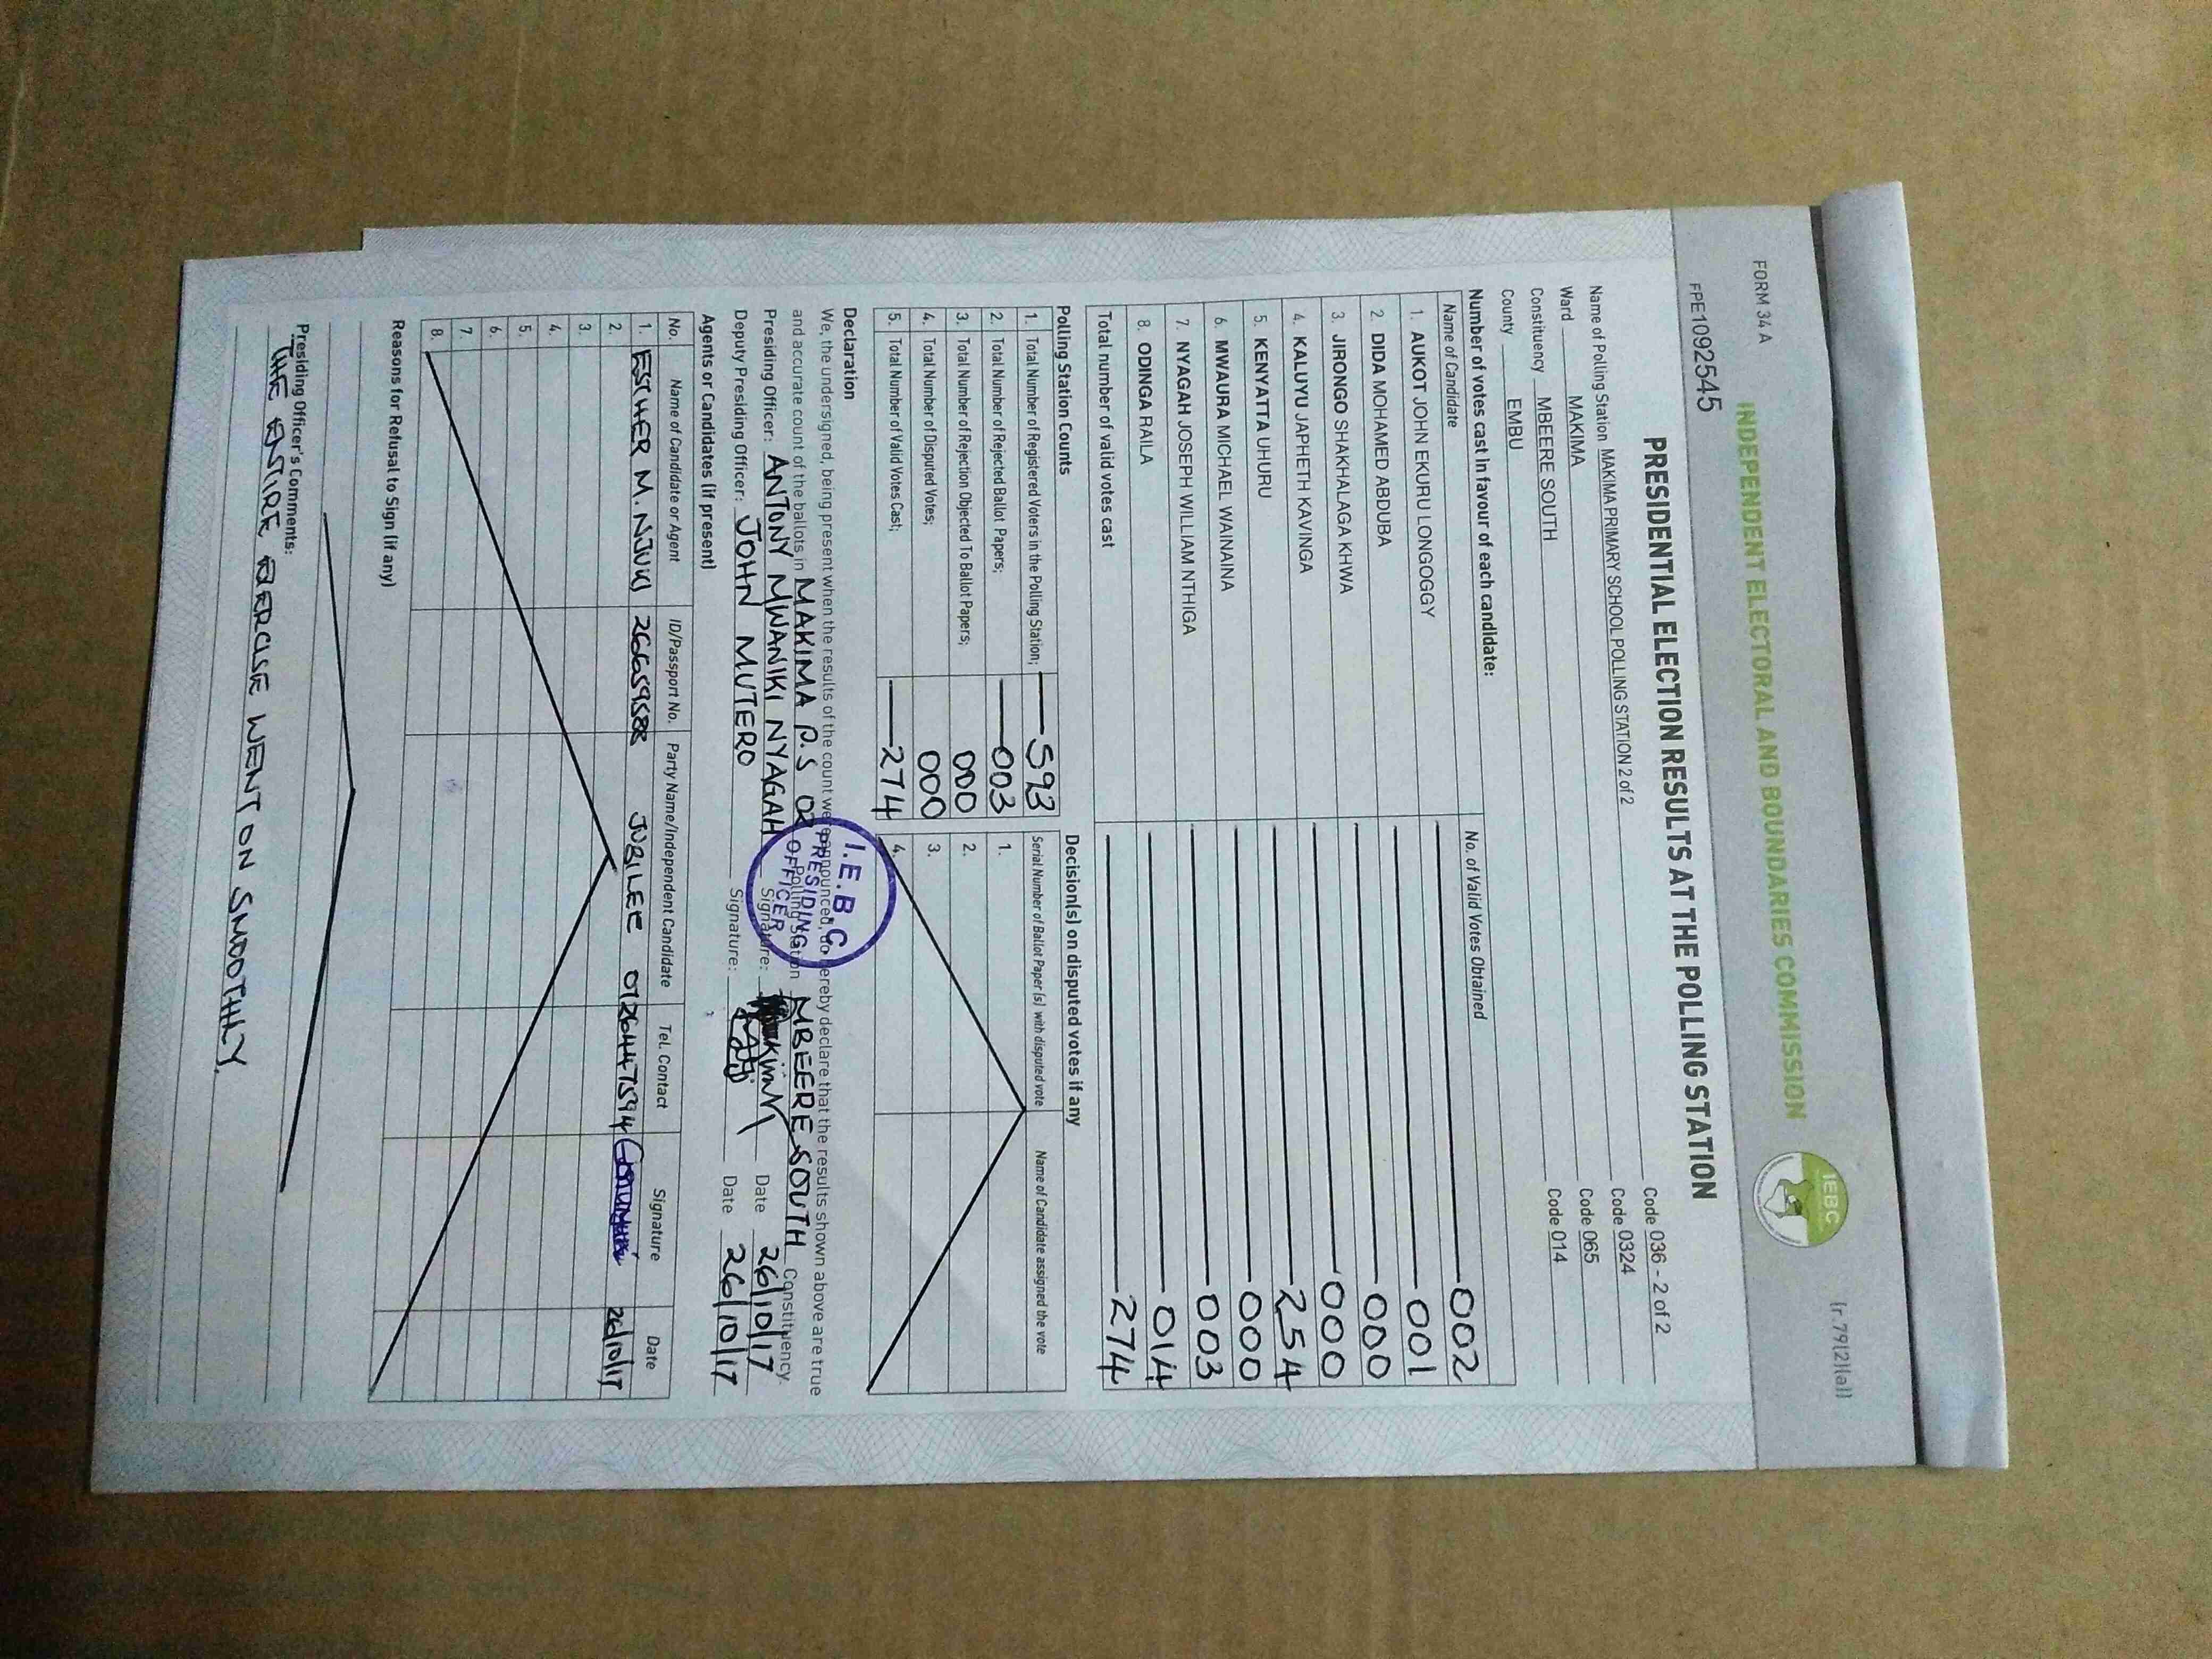 FORM 34 A
(r.79(2)(a))
INDEPENDENT ELECTORAL AND BOUNDARIES COMMISSION
IEBC
FPE1092545
PRESIDENTIAL ELECTION RESULTS AT THE POLLING STATION
Name of Polling Station MAKIMA PRIMARY SCHOOL POLLING STATION 2 of 2 Code 036 - 2 of 2
Ward MAKIMA Code 0324
Constituency MBEERE SOUTH Code 065
County EMBU Code 014
Number of votes cast in favour of each candidate:
Name of Candidate No. of Valid Votes Obtained
1. AUKOT JOHN EKURU LONGOGGY 002
2. DIDA MOHAMED ABDUBA 001
3. JIRONGO SHAKHALAGA KHWA 000
4. KALUYU JAPHETH KAVINGA 000
5. KENYATTA UHURU 254
6. MWAURA MICHAEL WAINAINA 000
7. NYAGAH JOSEPH WILLIAM NTHIGA 003
8. ODINGA RAILA 014
Total number of valid votes cast 274
Polling Station Counts
1. Total Number of Registered Voters in the Polling Station; 593
2. Total Number of Rejected Ballot Papers; 003
3. Total Number of Rejection Objected To Ballot Papers; 000
4. Total Number of Disputed Votes; 000
5. Total Number of Valid Votes Cast; 274
Decision(s) on disputed votes if any
Serial Number of Ballot Paper (s) with disputed vote Name of Candidate assigned the vote
1.
2.
3.
4.
Declaration
We, the undersigned, being present when the results of the count were announced, do hereby declare that the results shown above are true
and accurate count of the ballots in MAKIMA P.S 02 Polling Station MBEERE SOUTH Constituency.
Presiding Officer: ANTONY MWANIKI NYAGAH Signature: Date 26/10/17
Deputy Presiding Officer: JOHN MUTERO Signature: Date 26/10/17
I.E.B.C
PRESIDING
OFFICER
Agents or Candidates (if present)
No. Name of Candidate or Agent ID/Passport No. Party Name/Independent Candidate Tel. Contact Signature Date
1. ESTHER M. NJUKI 26659588 JUBILEE 0726447594 26/10/17
2.
3.
4.
5.
6.
7.
8.
Reasons for Refusal to Sign (if any)
Presiding Officer's Comments:
THE ENTIRE EXERCISE WENT ON SMOOTHLY.